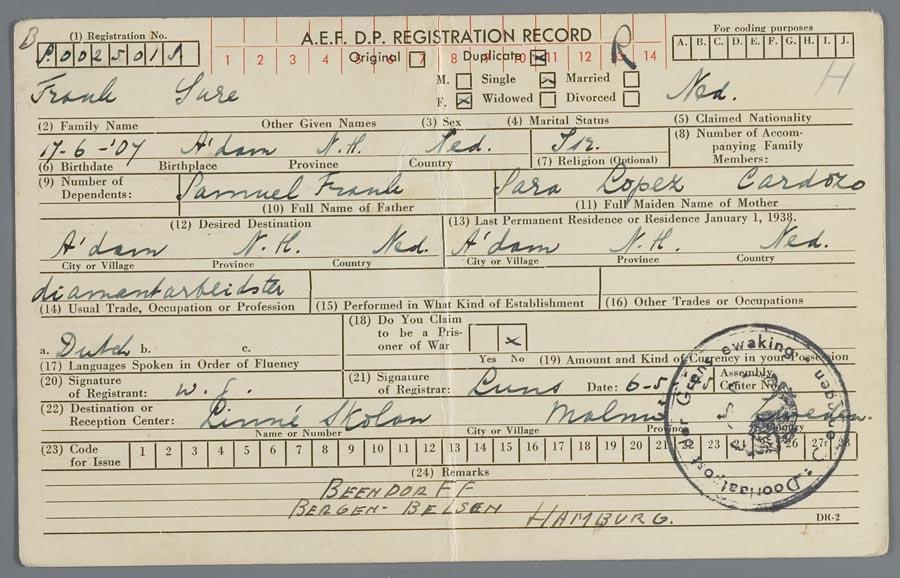 B (1) Registration No. A.E.F. D.P. REGISTRATION RECORD For coding purposes
P.0025011 Original Duplicate x R A. B. C. D. E. F. G. H. I. J.
1 2 3 4 5 6 7 8 9 10 11 12 13 14
M. Single x Married H
Frank Sure F. x Widowed Divorced Ned.
(2) Family Name Other Given Names (3) Sex (4) Marital Status (5) Claimed Nationality
17-6-'07 A'dam N.H. Ned. Isr. (8) Number of Accom-
panying Family
Members:
(6) Birthdate Birthplace Province Country (7) Religion (Optional)
(9) Number of
Dependents: Samuel Frank Sara Lopez Cardozo
(10) Full Name of Father (11) Full Maiden Name of Mother
(12) Desired Destination (13) Last Permanent Residence or Residence January 1, 1938.
A'dam N.H. Ned. A'dam N.H. Ned.
City or Village Province Country City or Village Province Country
diamantarbeidster
(14) Usual Trade, Occupation or Profession (15) Performed in What Kind of Establishment (16) Other Trades or Occupations
(18) Do You Claim
to be a Pris-
oner of War x
a. Dutch b. c.
(17) Languages Spoken in Order of Fluency Yes No (19) Amount and Kind of Currency in your Possession
(20) Signature
of Registrant: (21) Signature
of Registrar: Luns Date: 6-5 Assembly
Center No.
(22) Destination or
Reception Center: Linné Skolan
Name or Number City or Village Province Country
(23) Code
for Issue 1 2 3 4 5 6 7 8 9 10 11 12 13 14 15 16 17 18 19 20 21 23 26 27 28
(24) Remarks
BEENDORFF
BERGEN-BELSEN HAMBURG.
DR-2